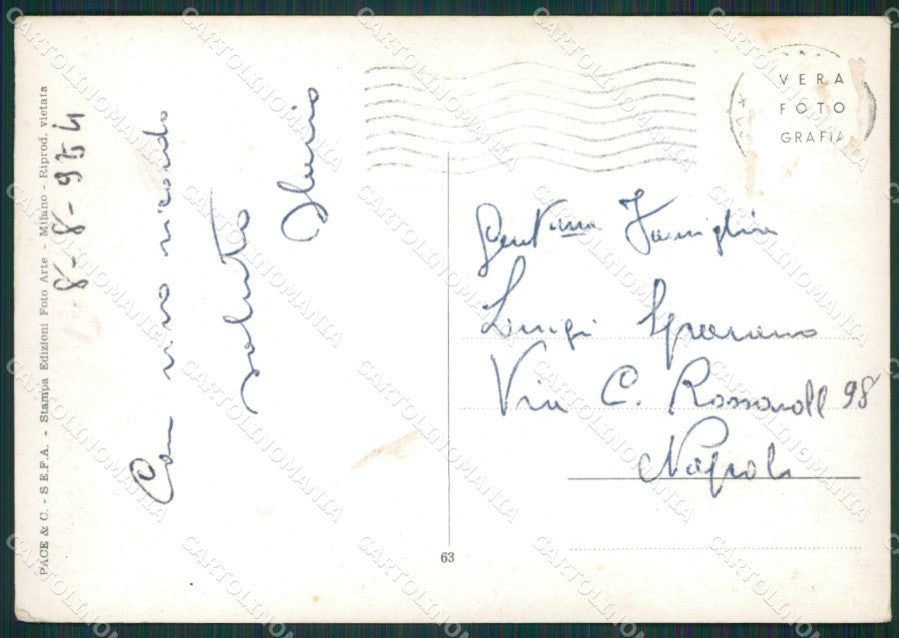 PACE & C. - S E.F.A. - Stampa Edizioni Foto Arte - Milano - Riprod. vietata
8-8-954
Con vivo ricordo
saluto
VERA
FOTO
GRAFIA
Gent.ma Famiglia
Luigi
Via C. Rossaroll 98
Napoli
63
CARTOLINOMANIA